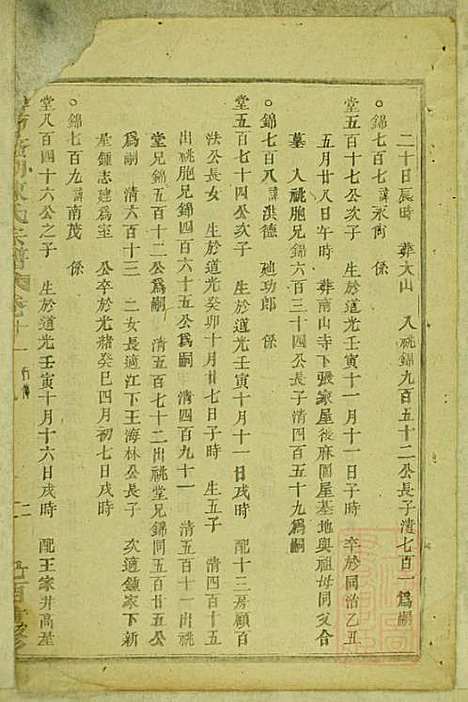 二十日辰時　葬大山　入祧錦九百五十二公長子清七百一爲嗣
○錦七百七諱永衡　係
堂五百十七公次子　生於道光壬寅十一月十一日子時　卒於同治乙丑
五月廿八日午時　葬南山寺下張家屋後麻園屋基地與祖母同父合
墓　入祧胞兄錦六百三十四公長子清四百五十九爲嗣
○錦七百八諱洪德　廸功郎　係
堂五百七十四公次子　生於道光壬寅十月十一日戌時　配十三房顧百
法公長女　生於道光癸卯十月廿七日子時　生五子　清四百十五
出祧胞兄錦四百六十五公爲嗣　清四百九十一　清五百十一出祧
堂兄錦五百十二公爲嗣　清五百七十二出祧堂兄錦同五百廿五公
爲嗣　清六百十三　二女長適江下王海林公長子　次適鍾家下新
屋鍾志建爲室　公卒於光緒癸巳四月初七日戌時
○錦七百九諱南茂　係
堂八百四十六公之子　生於道光壬寅十月十六日戌時　配王家井高屋
氏宗譜　卷十一　行傳　二